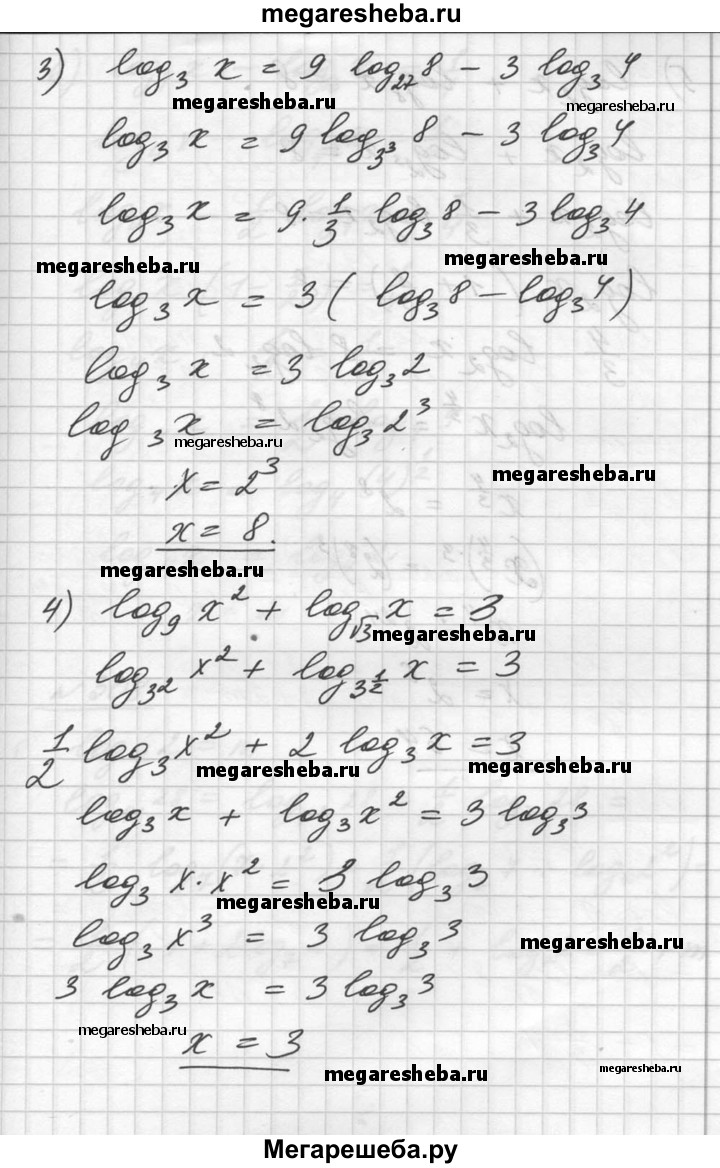 megaresheba.ru
3) log₃ x = 9 log₂₇ 8 − 3 log₃ 4
megaresheba.ru megaresheba.ru
log₃ x = 9 log₃³ 8 − 3 log₃ 4
log₃ x = 9 · 1/3 log₃ 8 − 3 log₃ 4
megaresheba.ru megaresheba.ru
log₃ x = 3 ( log₃ 8 − log₃ 4 )
log₃ x = 3 log₃ 2
log₃ x = log₃ 2³
megaresheba.ru megaresheba.ru
x = 2³
x = 8.
megaresheba.ru
4) log₉ x² + log_√3 x = 3
megaresheba.ru
log_3² x² + log_3^(1/2) x = 3
1/2 log₃ x² + 2 log₃ x = 3
megaresheba.ru megaresheba.ru
log₃ x + log₃ x² = 3 log₃ 3
log₃ x · x² = 3 log₃ 3
megaresheba.ru
log₃ x³ = 3 log₃ 3
megaresheba.ru
3 log₃ x = 3 log₃ 3
megaresheba.ru
x = 3
megaresheba.ru megaresheba.ru
Мегарешеба.ру